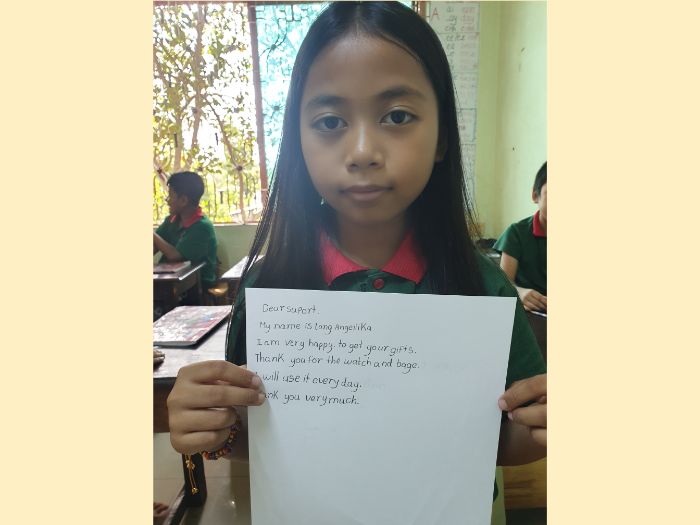 Dear suport.
My name is Long Angelika
I am very happy to get your gifts.
Thank you for the watch and bage.
I will use it every day.
ank you very much.
A